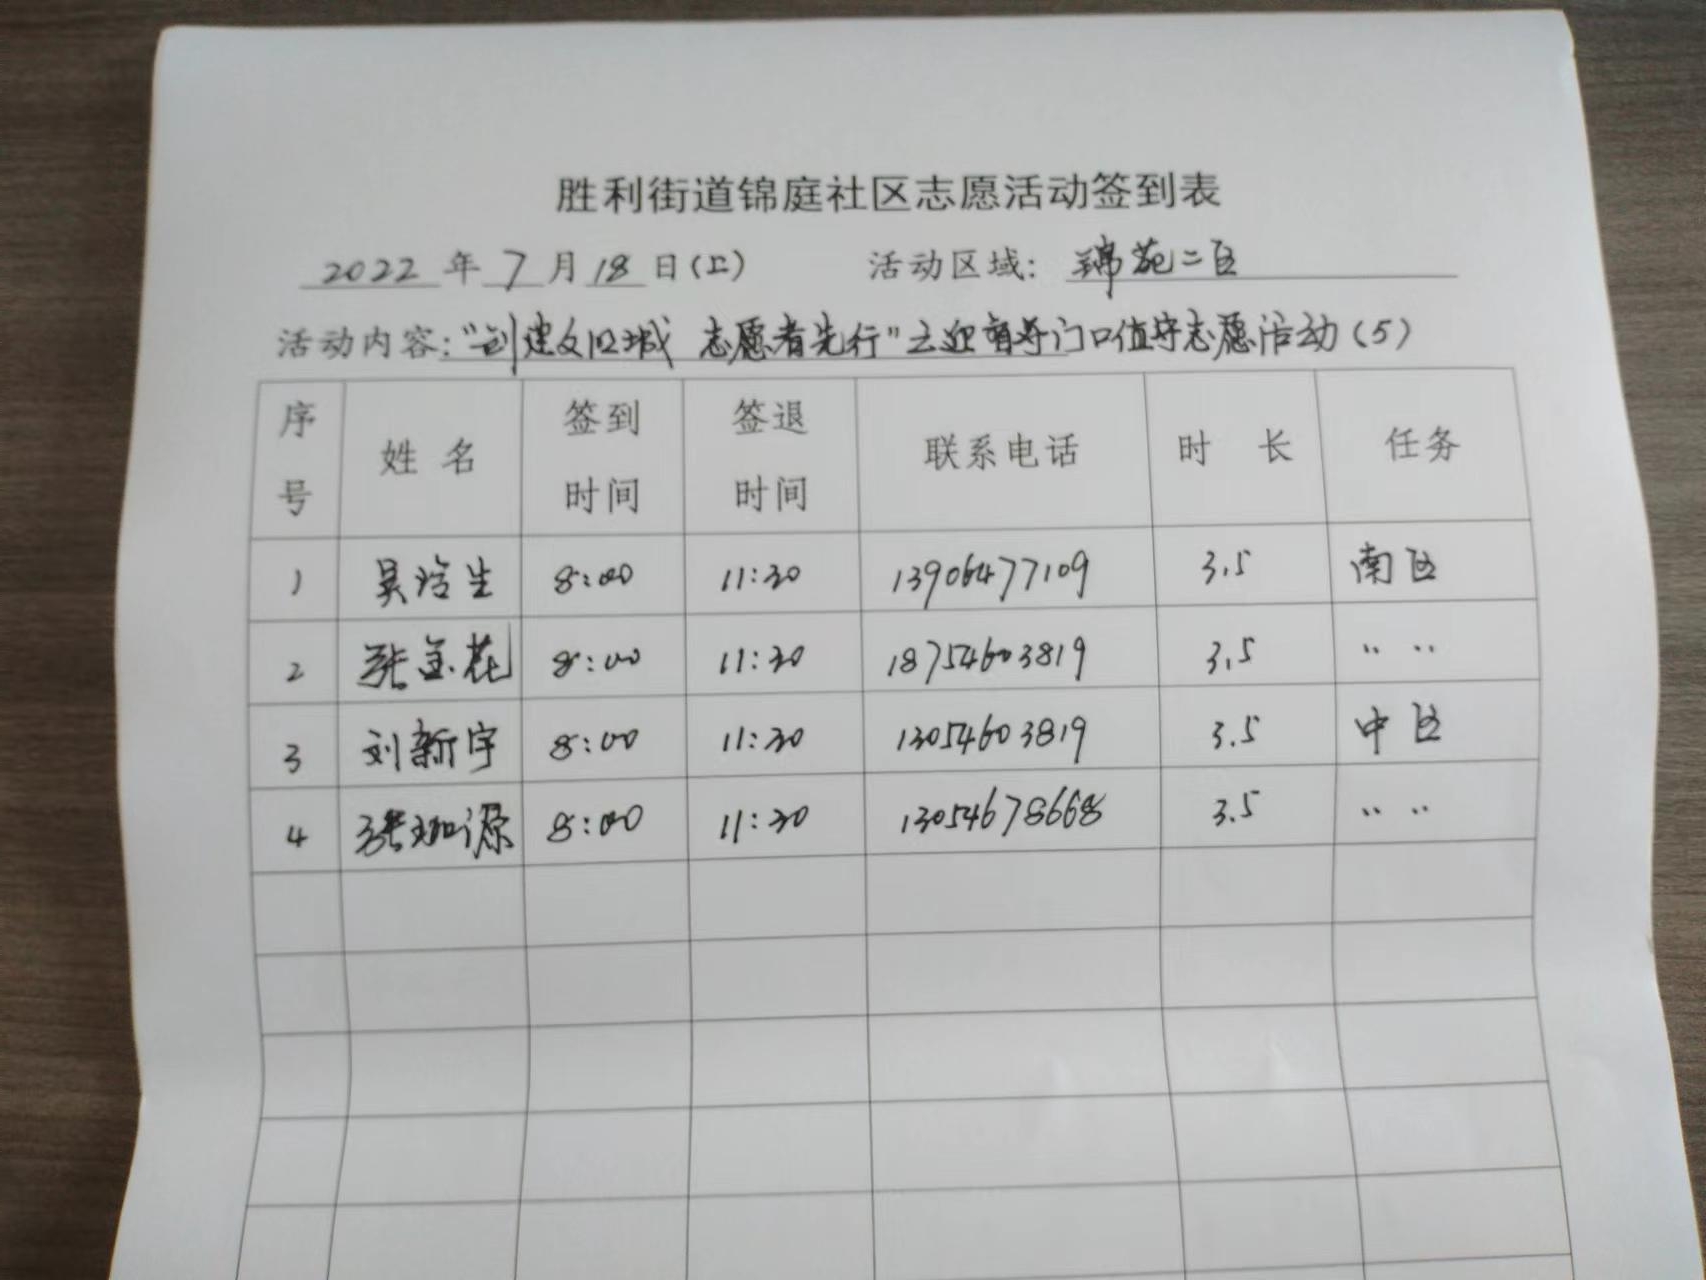 胜利街道锦庭社区志愿活动签到表
2022 年 7 月 18 日(上) 活动区域: 锦苑二区
活动内容: "创建文旧城 志愿者先行" 门口值守志愿活动(5)
序号 姓名 签到时间 签退时间 联系电话 时长 任务
1 吴洽生 8:00 11:30 13906477109 3.5 南区
2 张金花 8:00 11:30 18754603819 3.5 〃 〃
3 刘新宇 8:00 11:30 13054603819 3.5 中区
4 张珈源 8:00 11:30 13054678668 3.5 〃 〃